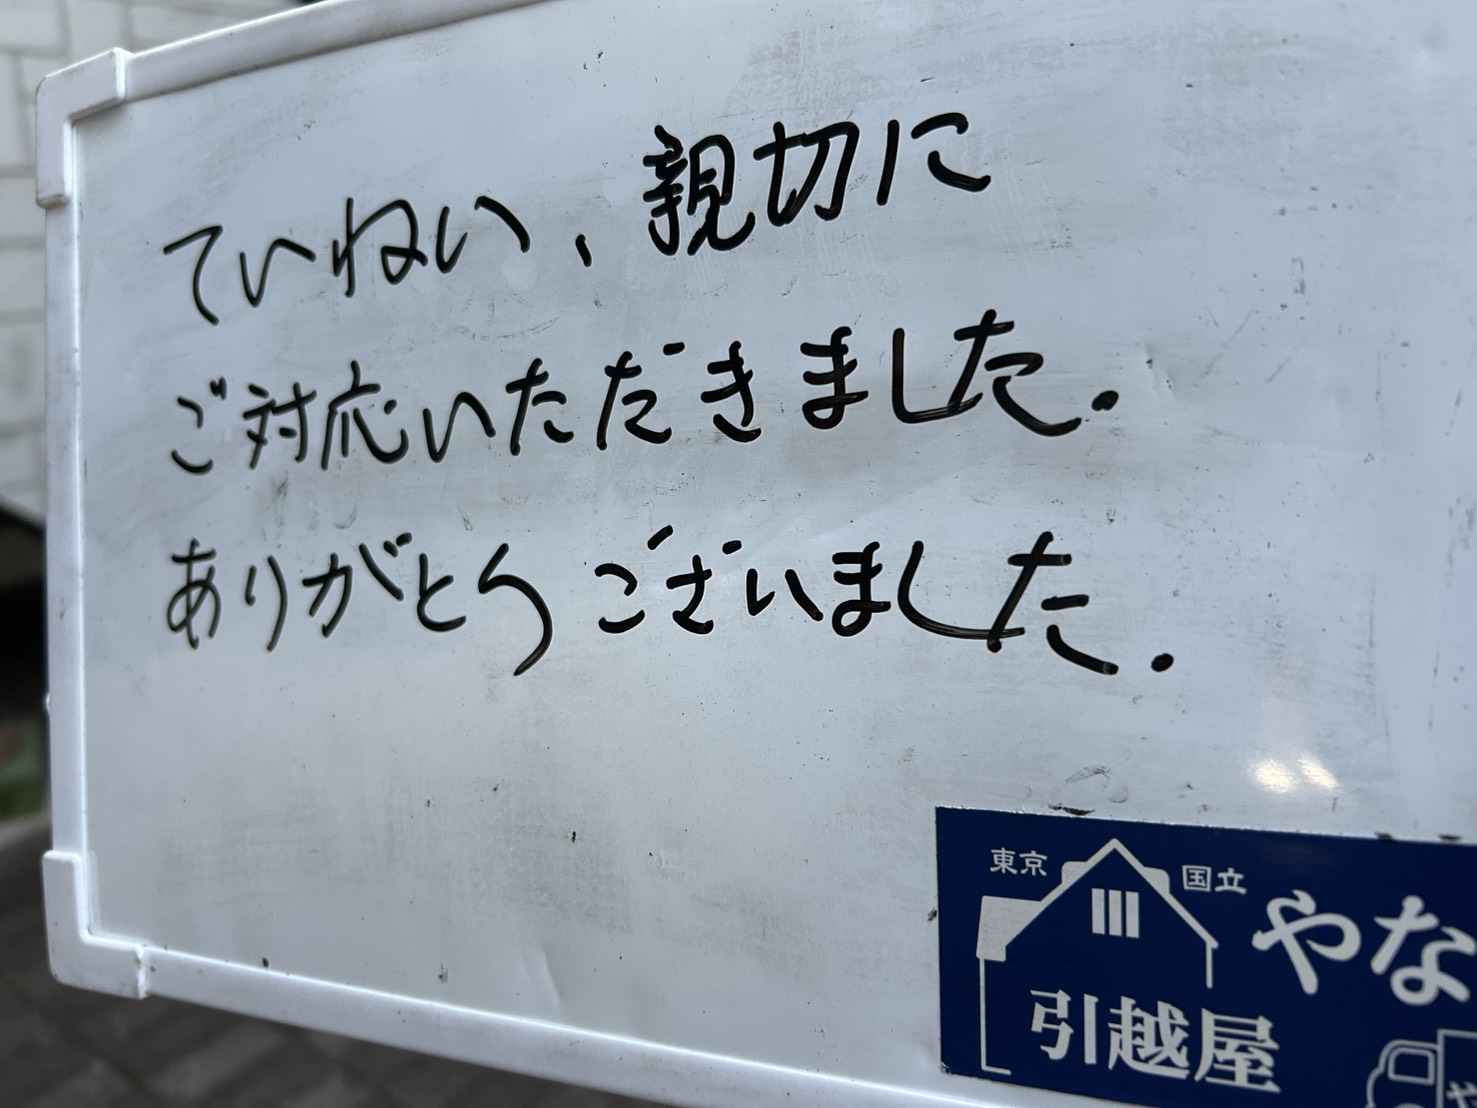 ていねい、親切に
ご対応いただきました.
ありがとうございました.
東京 国立
やな
引越屋